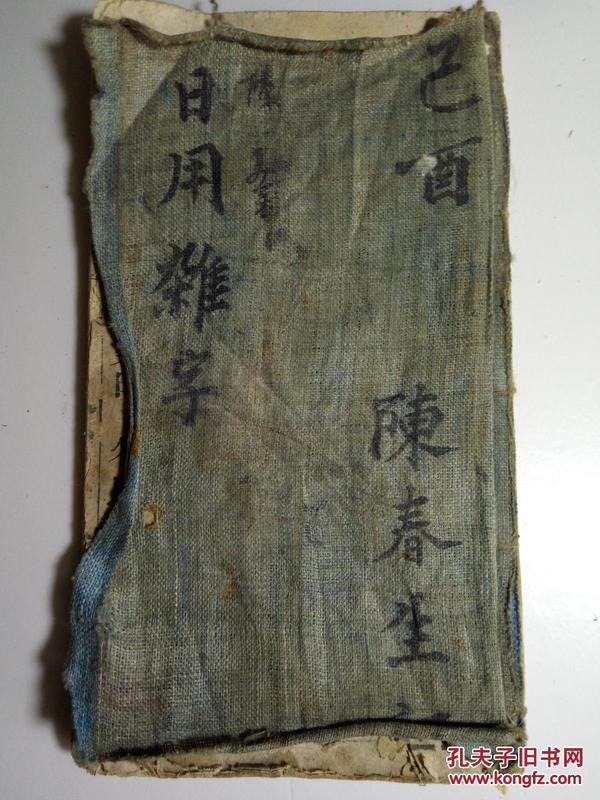 己酉
陳春生
日用雜字
孔夫子旧书网
www.kongfz.com